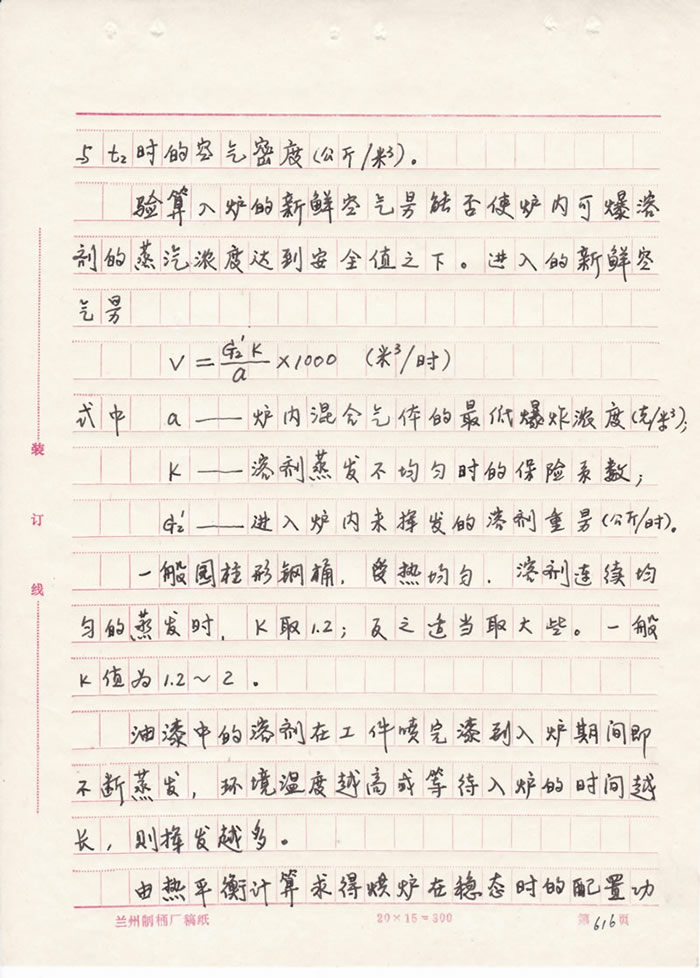 与t₂时的空气密度(公斤/米³)。
验算入炉的新鲜空气量能否使炉内可爆溶
剂的蒸汽浓度达到安全值之下。进入的新鲜空
气量
V=G₂'K/a×1000 (米³/时)
式中 a——炉内混合气体的最低爆炸浓度(克/米³);
K——溶剂蒸发不均匀时的保险系数;
G₂'——进入炉内未挥发的溶剂重量(公斤/时)。
一般园柱形钢桶,受热均匀,溶剂连续均
匀的蒸发时,K取1.2;反之适当取大些。一般
K值为1.2~2。
油漆中的溶剂在工件喷完漆到入炉期间即
不断蒸发,环境温度越高或等待入炉的时间越
长,则挥发越多。
由热平衡计算求得烘炉在稳态时的配置功
装
订
线
兰州制桶厂稿纸 20×15=300 第616页